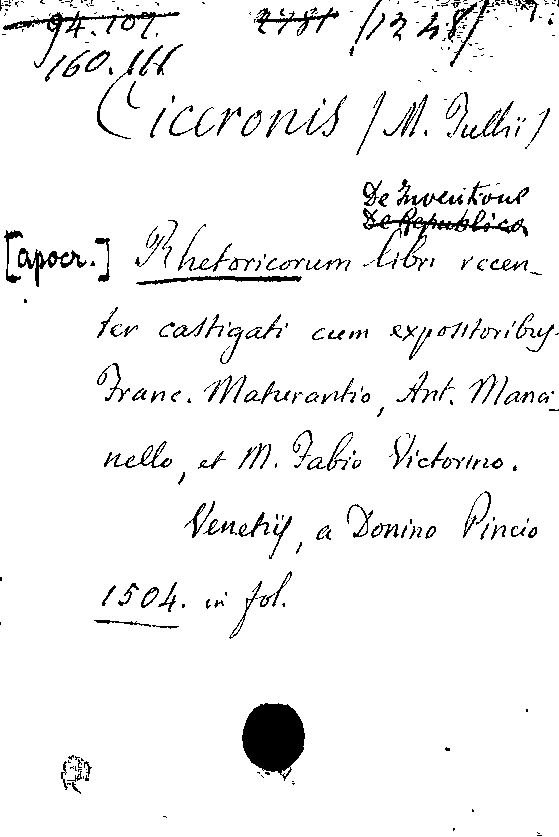 94.107.
160.166
Ciceronis (M. Tullii)
De Inventione
De Republica
[apocr.] Rhetoricorum libri recen-
ter castigati cum expositoribus
Franc. Maturantio, Ant. Manci-
nello, et M. Fabio Victorino.
Venetijs, a Donino Pincio
1504. in fol.